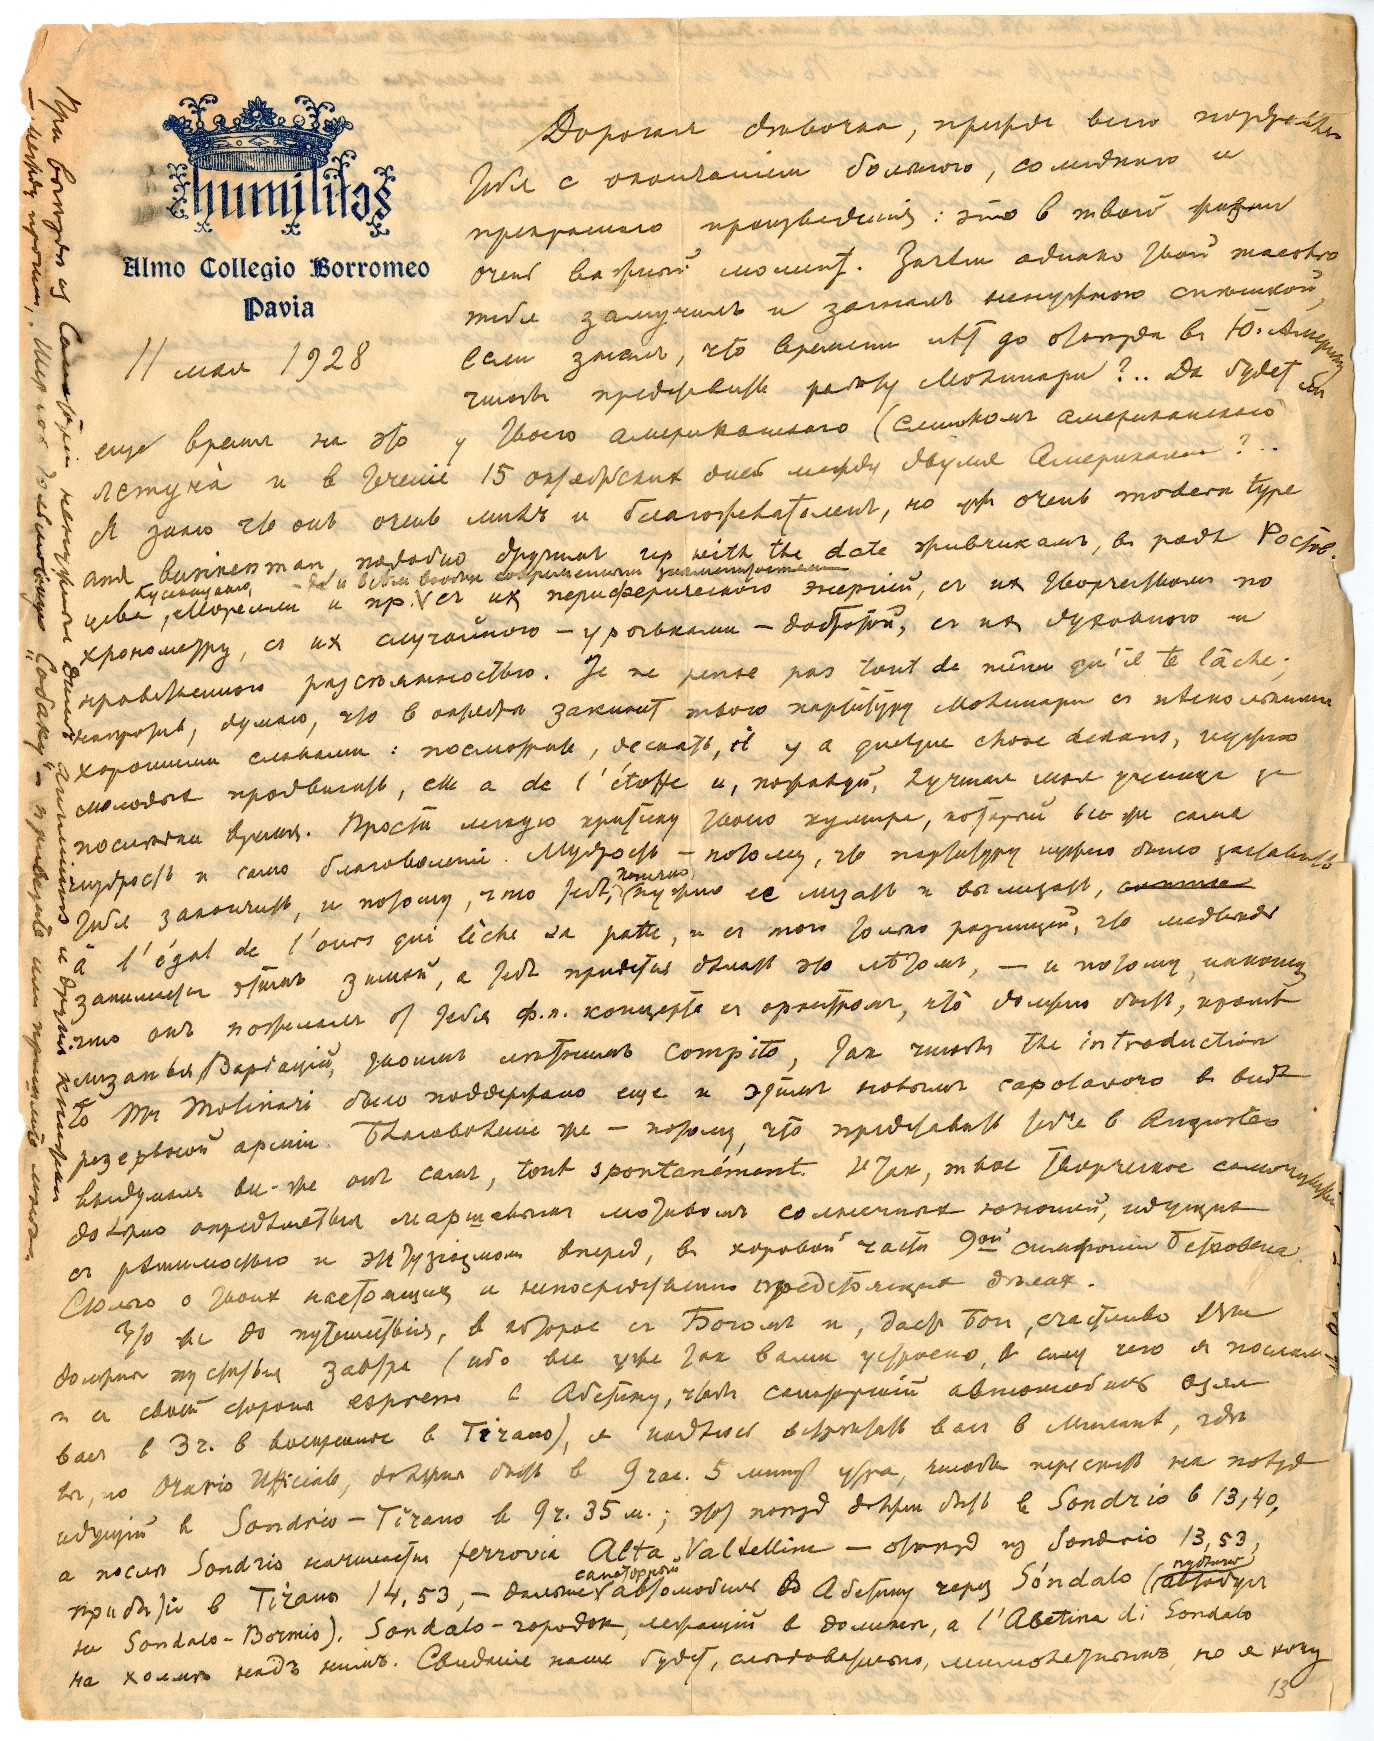 humilitas
Almo Collegio Borromeo
Pavia
11 мая 1928
Дорогая девочка, прежде всего поздравляю
тебя с окончанием большого, солидного и
прекрасного произведения: это в твоей жизни
очень важный момент. Зачем однако твой maestro
тебя замучил и загнал ненужною спешкой,
если знал, что времени нет до отъезда в Ю. Америку
чтобы представить работу Молинари?.. Да будет ли
еще время на это у твоего американского (слишком американского
летуна и в течение 15 октябрьских дней между двумя Америками?..
Я знаю что он очень мил и благожелателен, но уж очень modern type
and businessman, подобно другим up with the date живчикам, в роде Ростов-
цева, Кусевицкого,Морелли и пр. – да и всем вообще современным знаменитостям – с их периферической энергией, с их творчеством по
хронометру, с их случайною – урывками – добротой, с их духовною и
нравственною рассеянностью. Je ne pense pas tout de même qu'il te lâche;
напротив, думаю, что в октябре закинет твою партитуру Молинари с несколькими
хорошими словами: посмотрите, дескать, il y a quelque chose dedans, нужно
молодых продвигать, elle a de l'étoffe и, пожалуй, лучшая моя ученица за
последнее время. Прости легкую критику твоего кумира, который все же сама
мудрость и само благоволение. Мудрость – потому, что партитуру нужно было заставить
тебя закончить, и потому, что тебе, конечно, нужно ее лизать и вылизать,
à l'égal de l'ours qui lèche sa patte, и с тою только разницей, что медведь
занимается этим зимой, а тебе придется делать это летом, – и потому, наконец,
что он пожелал от тебя ф.п. концерта с оркестром, что должно быть, кроме
лизанья Вариаций, твоим летним compito, так чтобы the introduction
to Mr Molinari было поддержано еще и этим новым capolavoro в виде
резервной армии. Благоволение же – потому, что представить тебя в Augusteo
выдумал все-же он сам, tout spontanément. Итак, твое творческое самочувствие
должно определяться маршевым мотивом солнечных юношей, идущих
с решимостью и энтузиазмом вперед, в хоровой части 9ой симфонии Бетховена.
Столько о твоих настоящих и непосредственно предстоящих делах.
Что же до путешествия, в которое с Богом и, даст Бог, счастливо вы
должны пуститься завтра (ибо все уже так вами устроено, в силу чего я послал
и с своей стороны espresso в Абетину, чтобы санаторский автомобиль взял
вас в 3 ч. в воскресенье в Tirano), я надеюсь встретить вас в Милане, где
вы, по Orario Ufficiale, должны быть в 9 час. 5 минут утра, чтобы пересесть на поезд
идущий в Sondrio – Tirano в 9 ч. 35 м.; этот поезд должен быть в Sondrio в 13,40,
а после Sondrio начинается ferrovia Alta Valtellina – отъезд из Sondrio 13,53,
прибытие в Tirano 14,53, – дальше санаторный автомобиль в Абетину через Sóndalo (автобус
на Sondalo-Bormio). Sondalo – городок, лежащий в долине, а l'Abetina di Sondalo
на холме над ним. Свидание наше будет, следовательно, мимолетным, но я хочу
13
При выезде из
и другими книгами
– между прочим,
"Собаку" и привезите